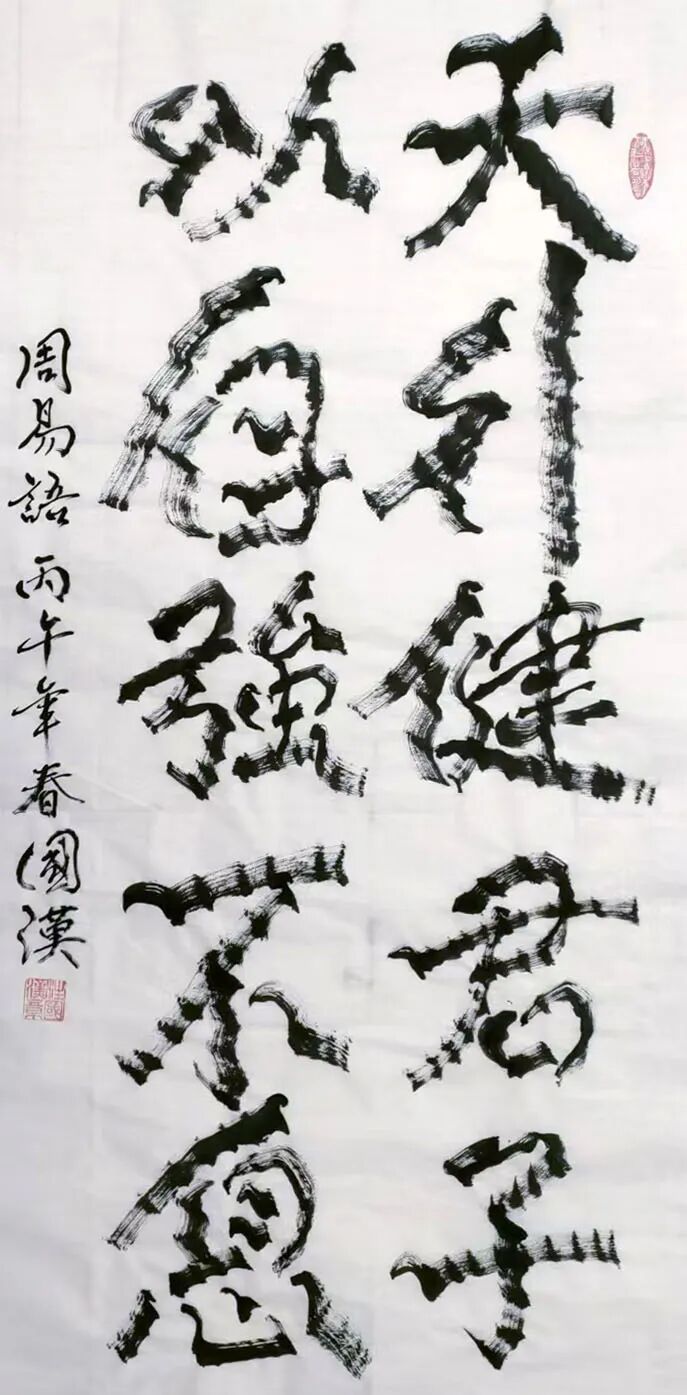 天行健君子
以自強不息
周易語丙午年春國漢